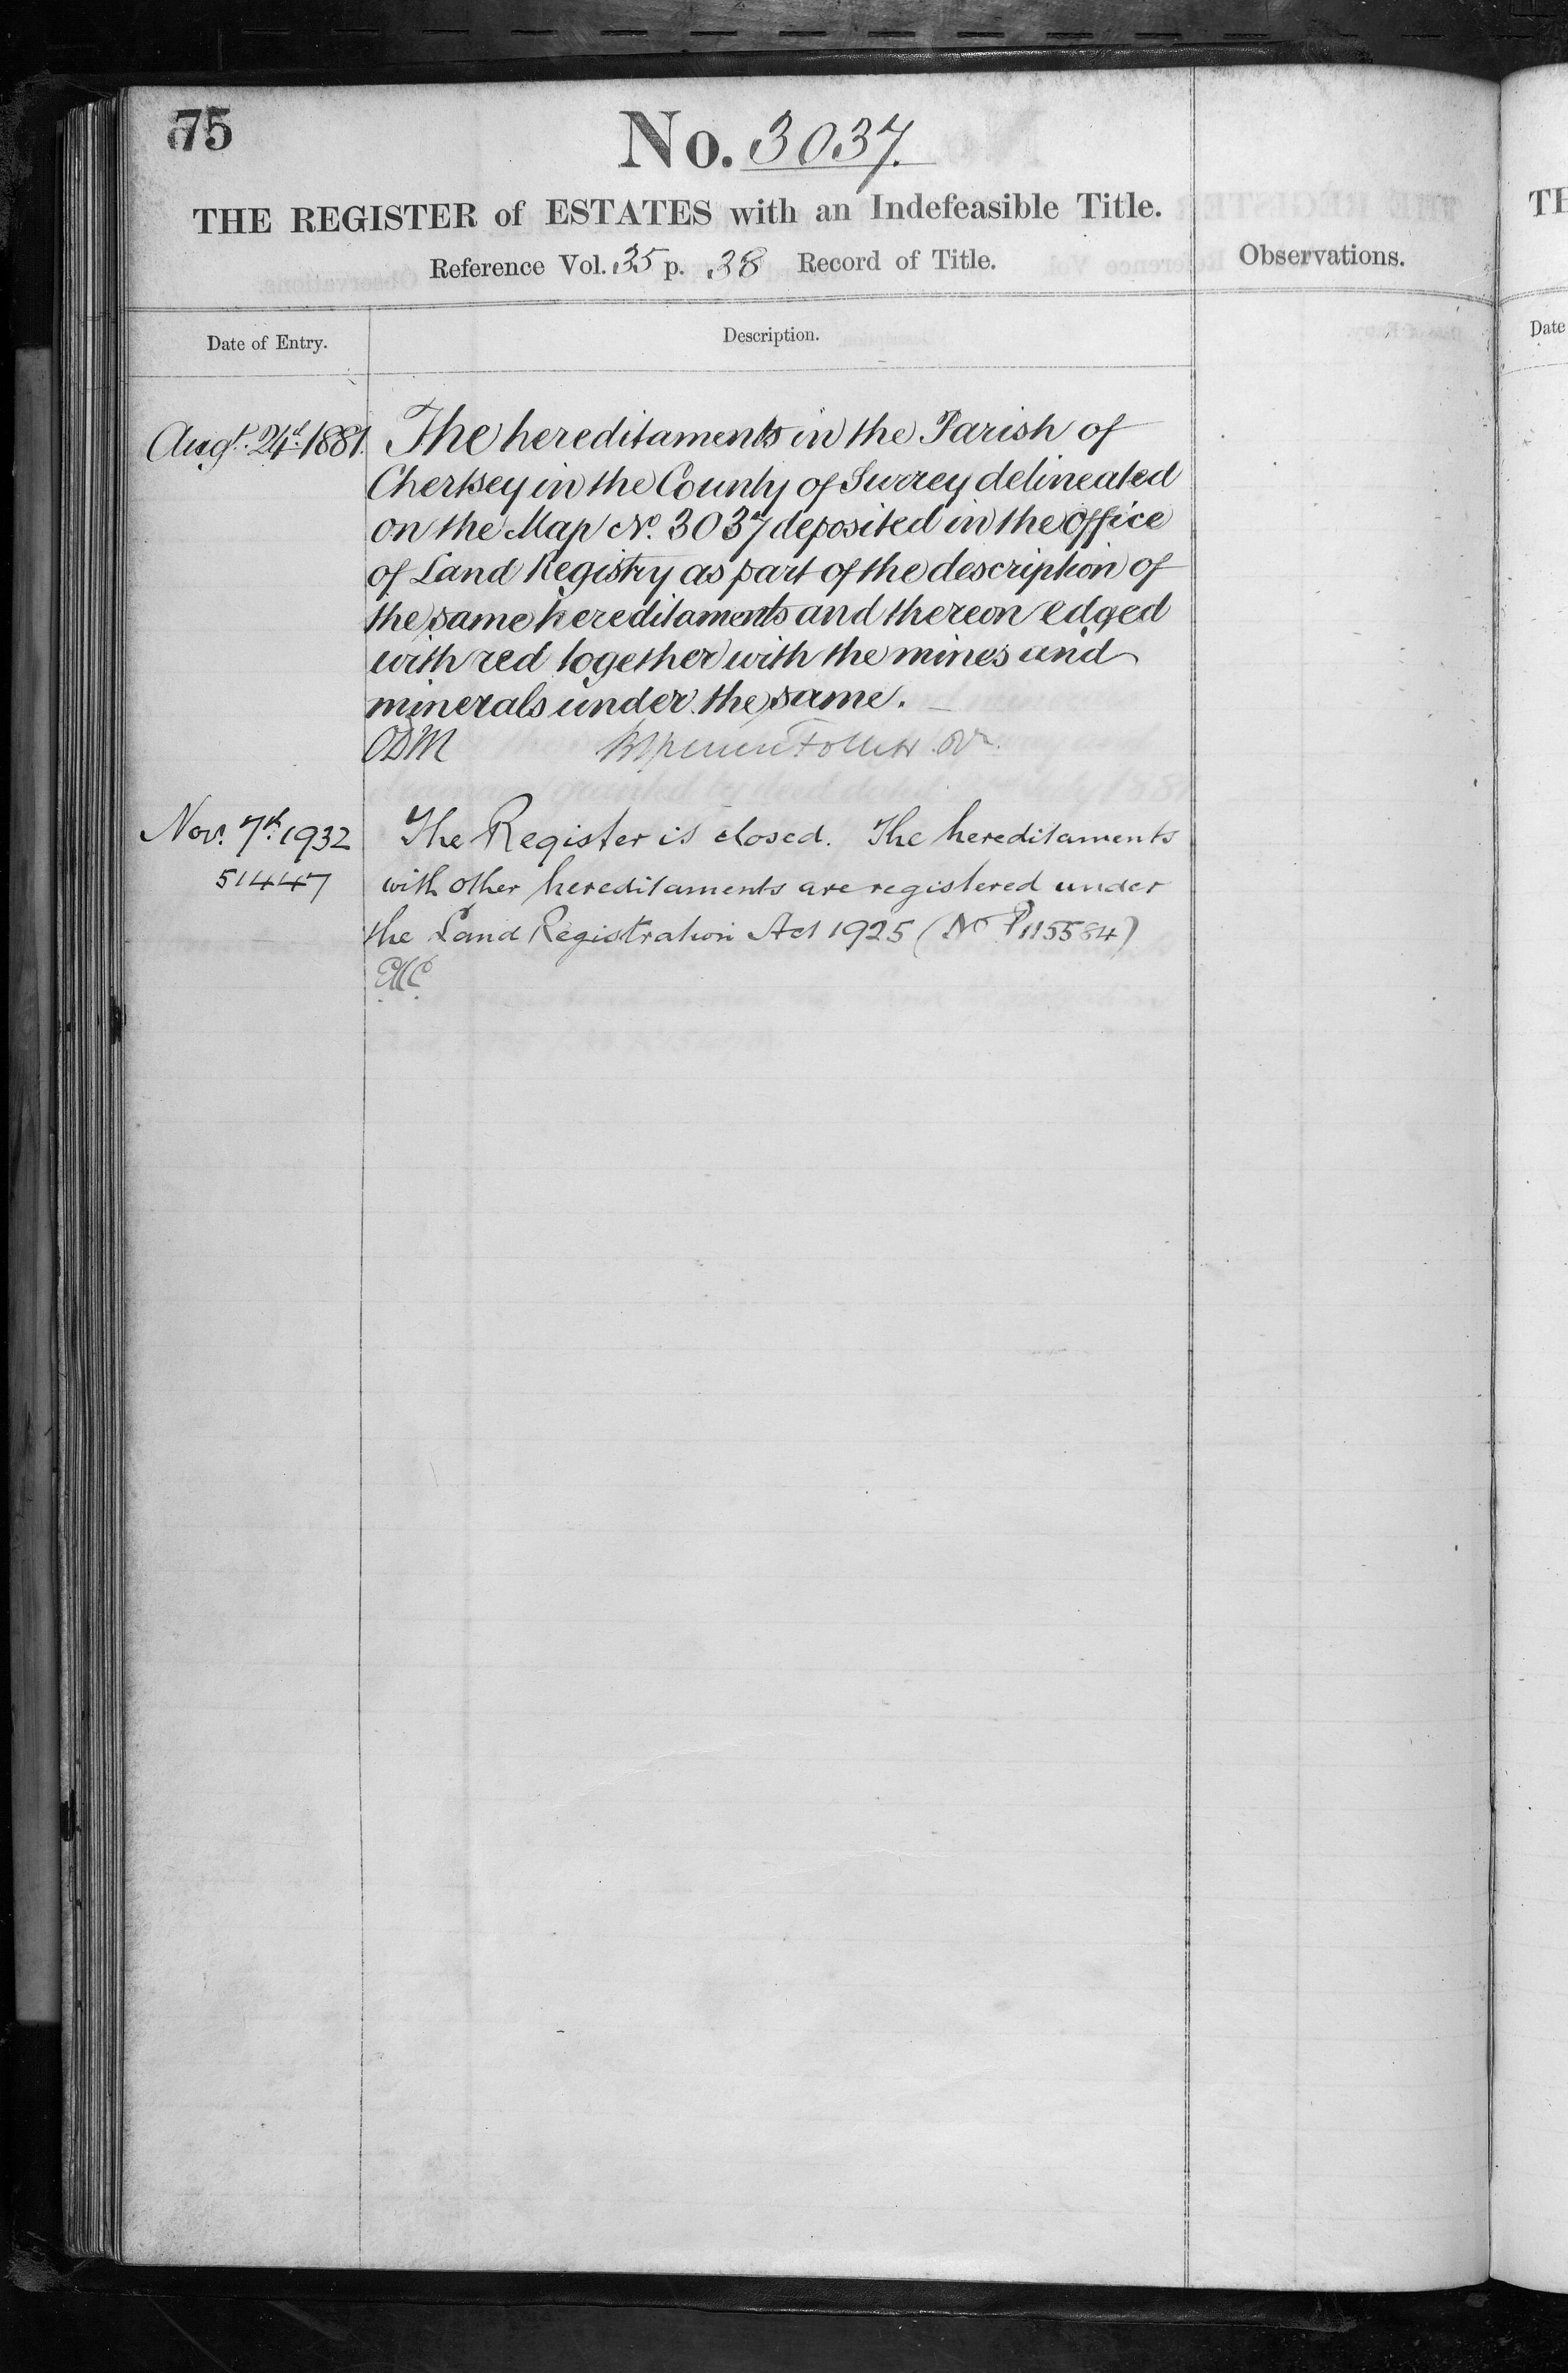 75
No. 3037.
THE REGISTER of ESTATES with an Indefeasible Title.
Reference Vol. 35 p. 38 Record of Title.
Observations.
Date of Entry.
Description.
Augt. 24th. 1881. The hereditaments in the Parish of
Chertsey in the County of Surrey delineated
on the Map No. 3037 deposited in the Office
of Land Registry as part of the description of
the same hereditaments and thereon edged
with red together with the mines and
minerals under the same.
ODM
Novr. 7th. 1932 The Register is closed. The hereditaments
51447 with other hereditaments are registered under
the Land Registration Act 1925 (No P115584)
TH
Date